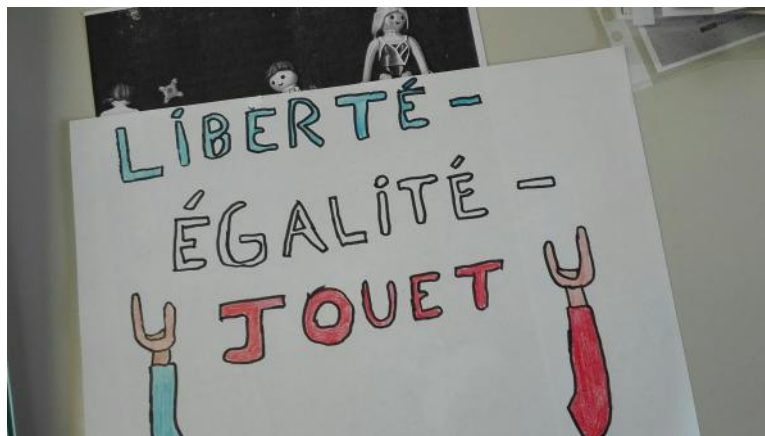 LiBERTÉ -
ÉGALiTÉ -
JOUET